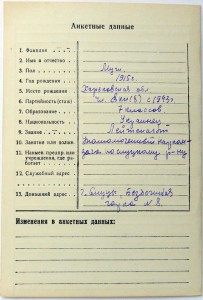 Анкетные данные
1. Фамилия
2. Имя и отчество
3. Пол Муж.
4. Год рождения 1915г.
5. Место рождения Харьковская обл.
6. Партийность (стаж) чл. ВКП(б) с 1943г.
7. Образование 7 классов
8. Национальность Украинец
9. Звание Лейтенант
10. Занятие или должн.
11. Наимен. предпр. или
учреждения, где ра-
ботает
12. Служебный адрес
13. Домашний адрес г. Слуцк,
№ 8.
Изменения в анкетных данных: